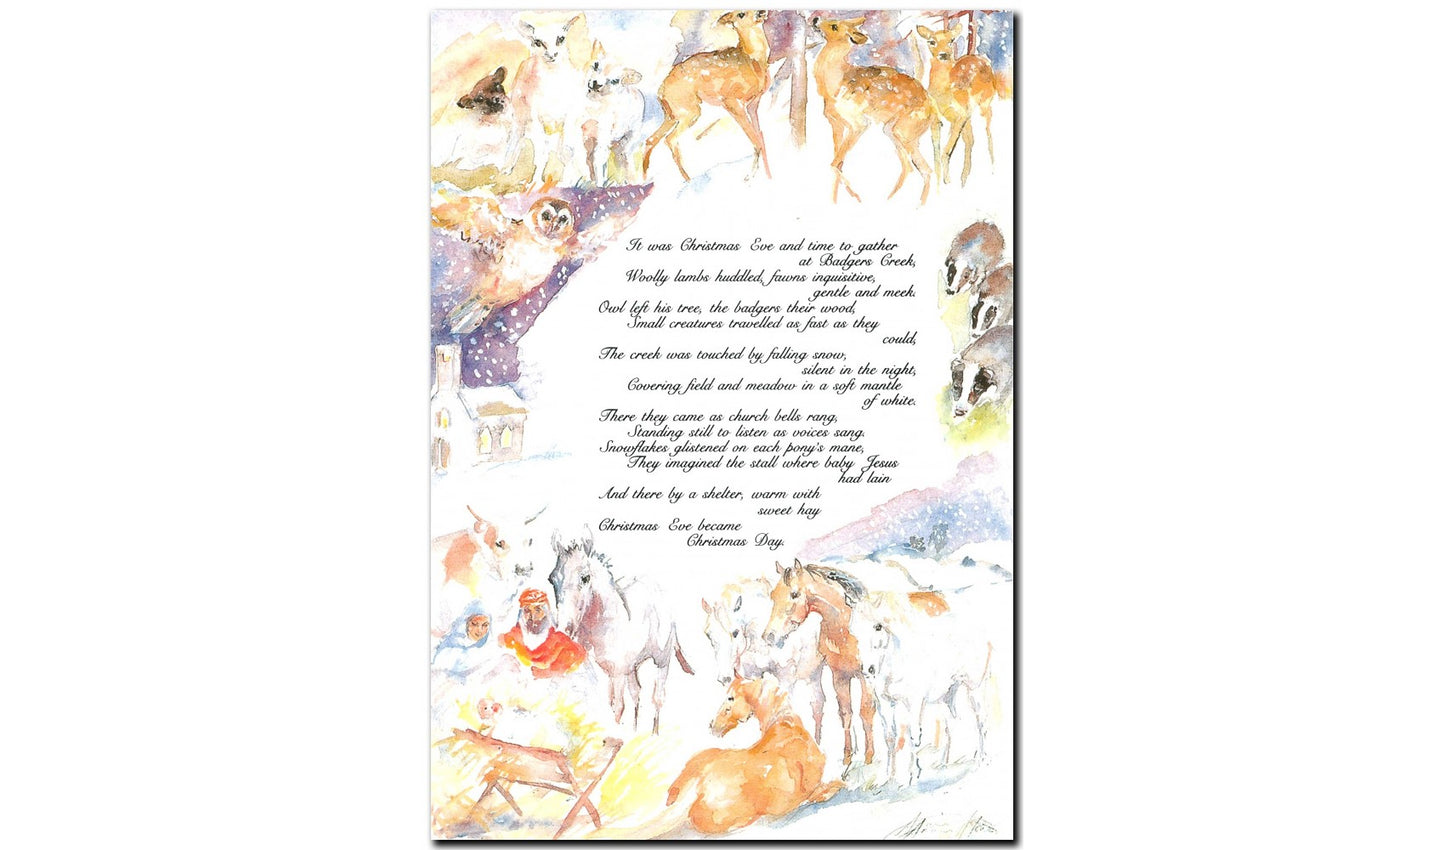 It was Christmas Eve and time to gather
at Badgers Creek,
Woolly lambs huddled, fawns inquisitive,
gentle and meek.
Owl left his tree, the badgers their wood,
Small creatures travelled as fast as they
could,
The creek was touched by falling snow,
silent in the night,
Covering field and meadow in a soft mantle
of white.
There they came as church bells rang,
Standing still to listen as voices sang.
Snowflakes glistened on each pony's mane,
They imagined the stall where baby Jesus
had lain
And there by a shelter, warm with
sweet hay
Christmas Eve became
Christmas Day.